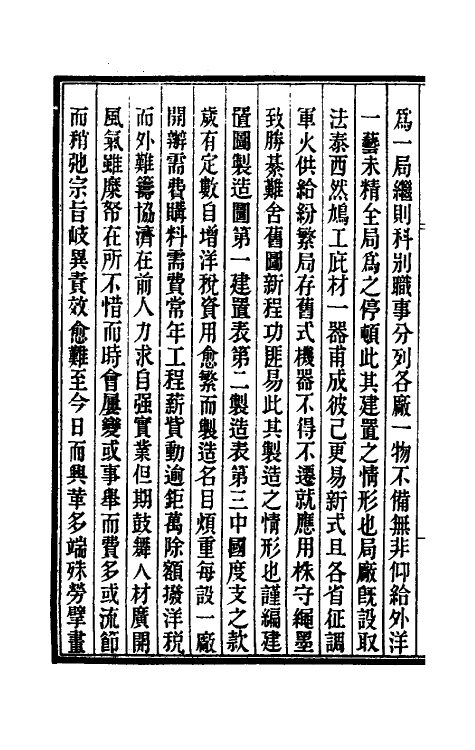 爲一局繼則科别職事分列各廠一物不備無非仰給外洋
一藝未精全局爲之停頓此其建置之情形也局廠旣設取
法泰西然鳩工庇材一器甫成彼已更易新式且各省征調
軍火供給紛繁局存舊式機器不得不遷就應用株守繩墨
致勝綦難舍舊圖新程功匪易此其製造之情形也謹編建
置圖製造圖第一建置表第二製造表第三中國度支之款
歲有定數自增洋稅資用愈繁而製造名目煩重每設一廠
開辦需費購料需費常年工程薪貲動逾鉅萬除額撥洋稅
而外難籌協濟在前人力求自强實業但期鼓舞人材廣開
風氣雖糜帑在所不惜而時會屢變或事舉而費多或流節
而稍弛宗旨歧異責效愈難至今日而興革多端殊勞擘畫